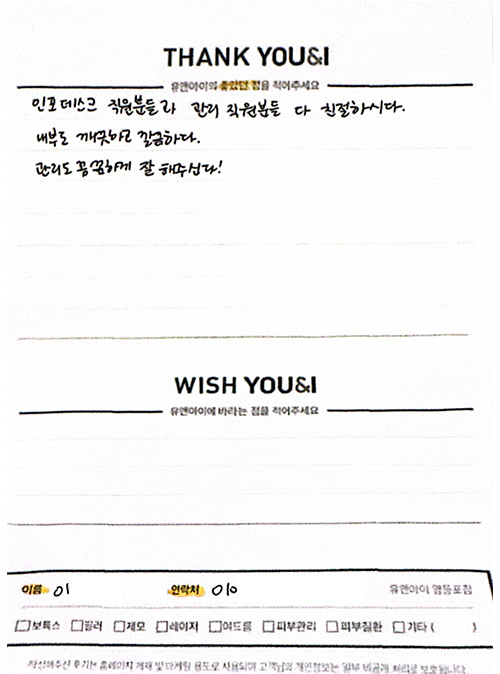 THANK YOU&I
유앤아이의 좋았던 점을 적어주세요
인포데스크 직원분들과 관리 직원분들 다 친절하시다.
내부도 깨끗하고 깔끔하다.
관리도 꼼꼼하게 잘 해주신다!
WISH YOU&I
유앤아이에 바라는 점을 적어주세요
이름 이 연락처 010 유앤아이 영등포점
□보톡스 □필러 □제모 □레이저 □여드름 □피부관리 □피부질환 □기타 ( )
작성해주신 후기는 홈페이지 게재 및 마케팅 용도로 사용되며 고객님의 개인정보는 일부 비공개 처리로 보호됩니다.